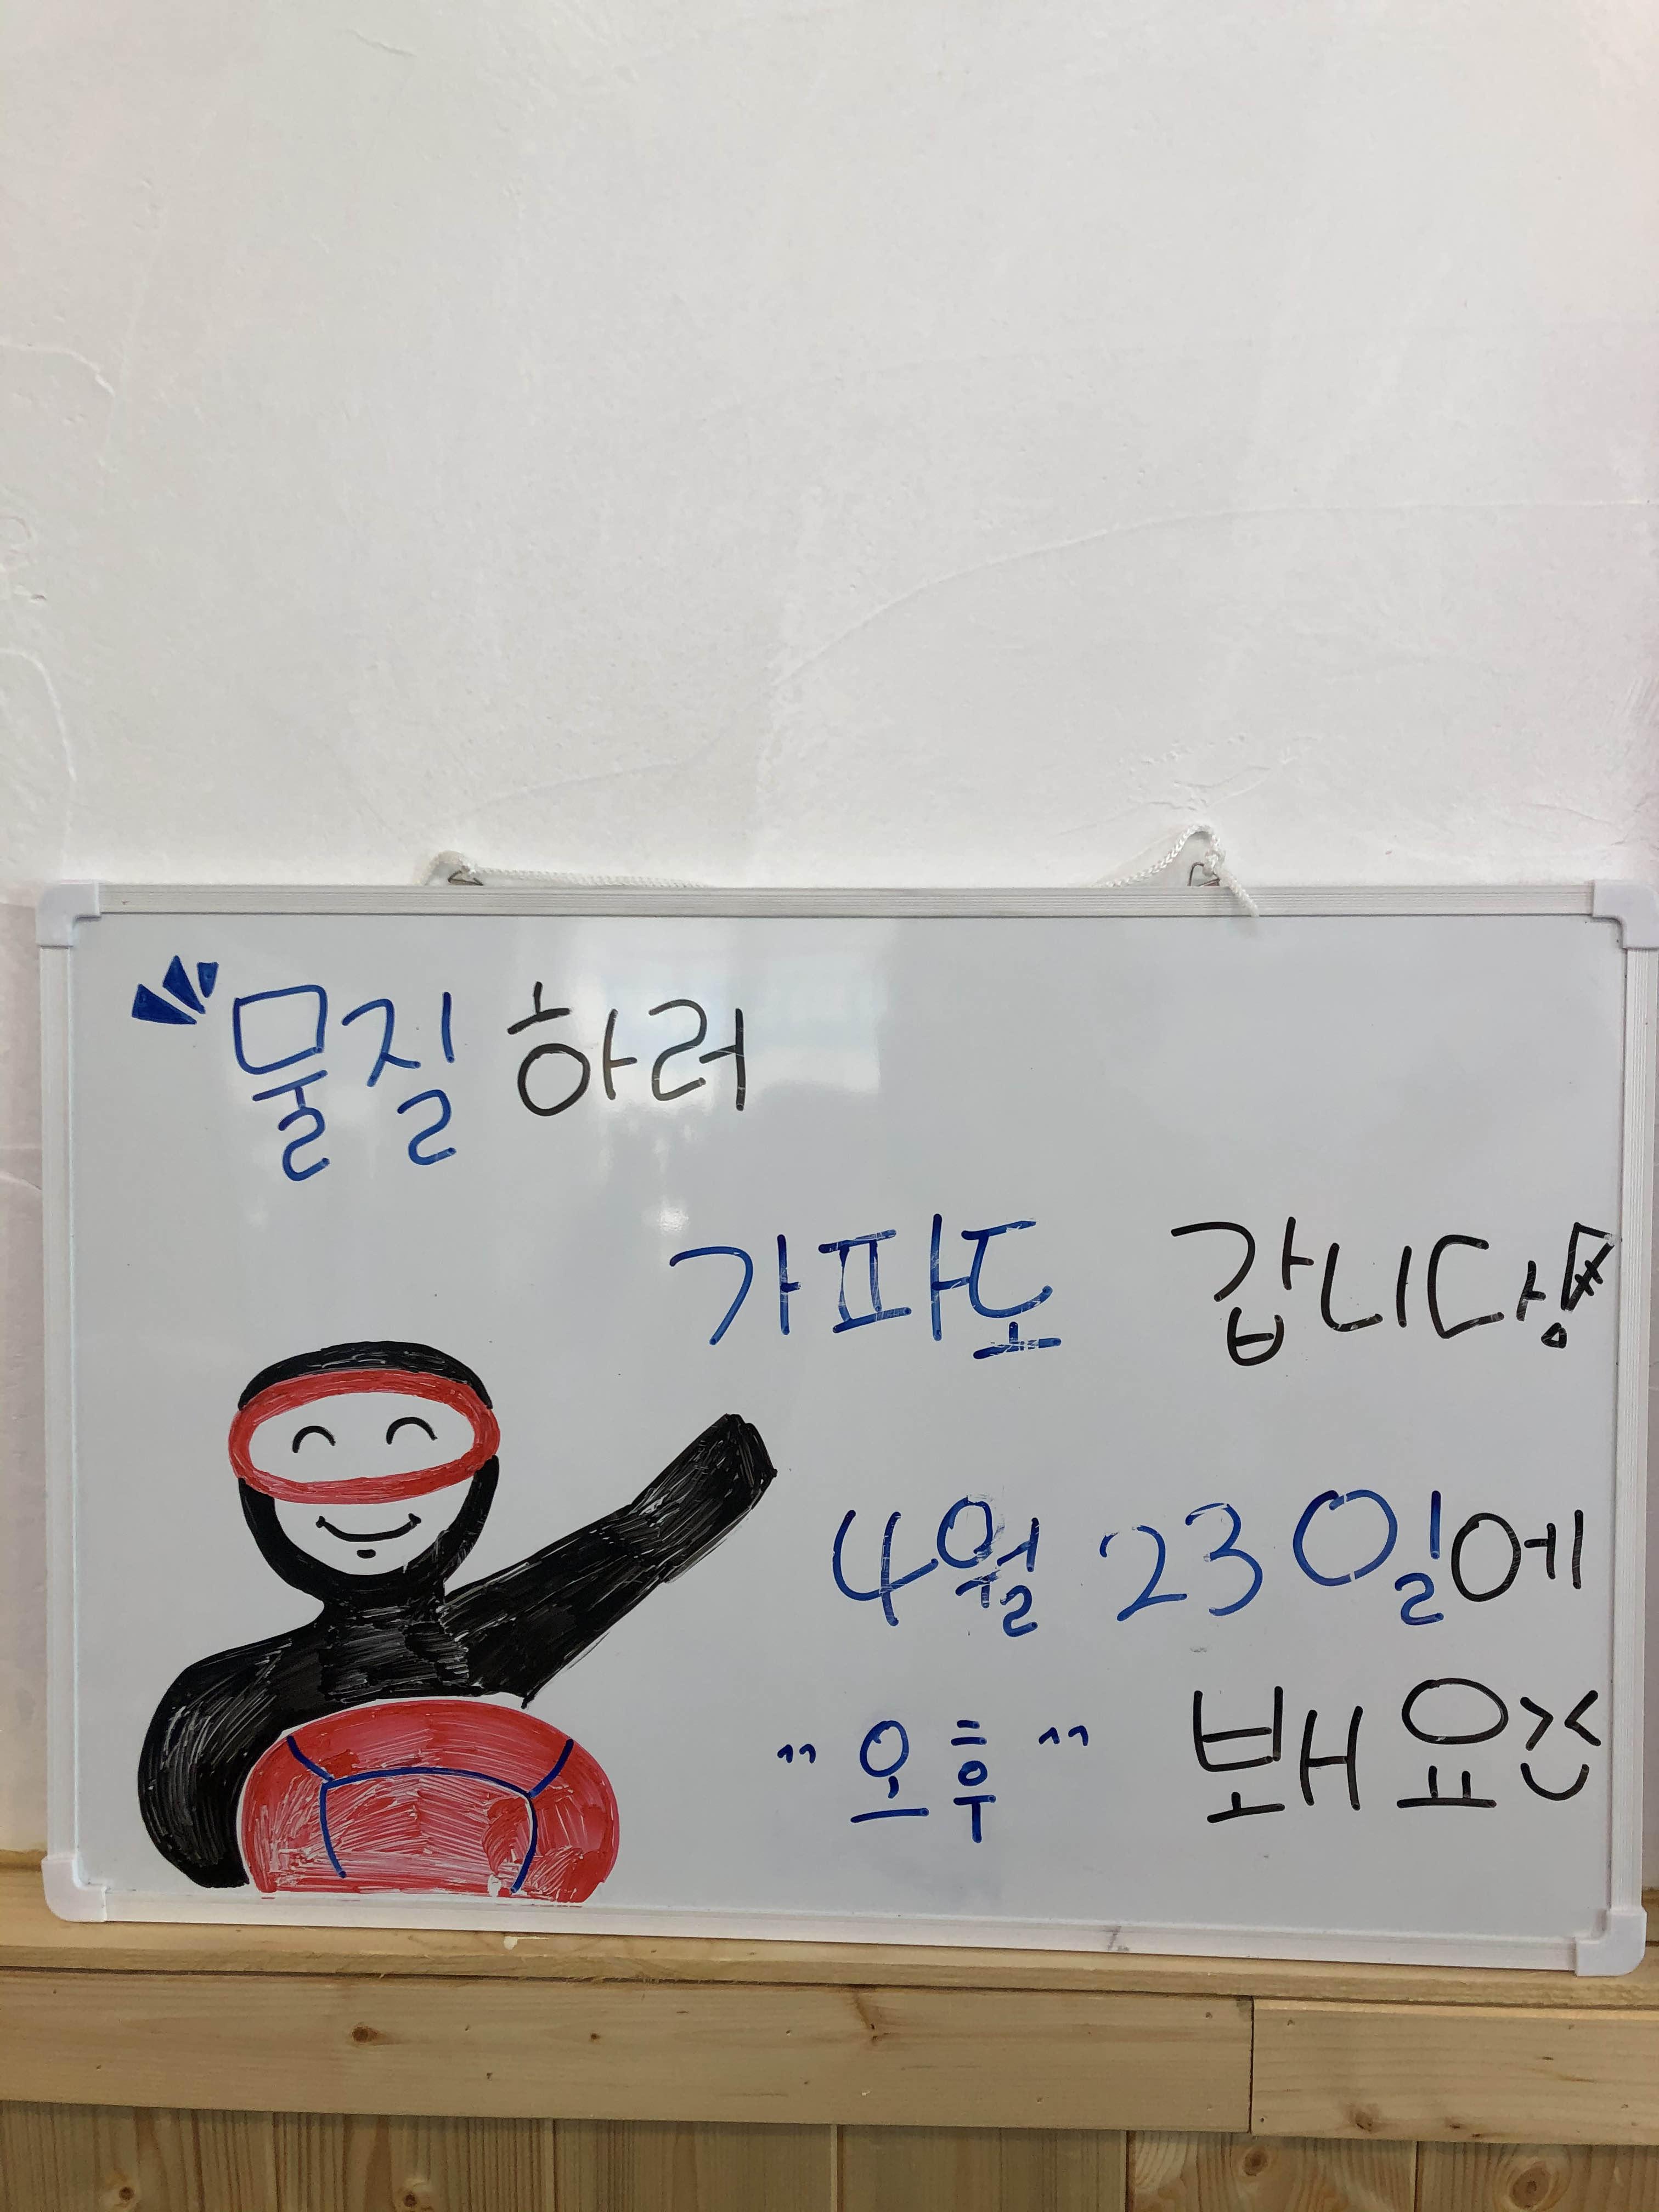 물질 하러
가파도 갑니다!
4월 23일에
"오후" 봬요